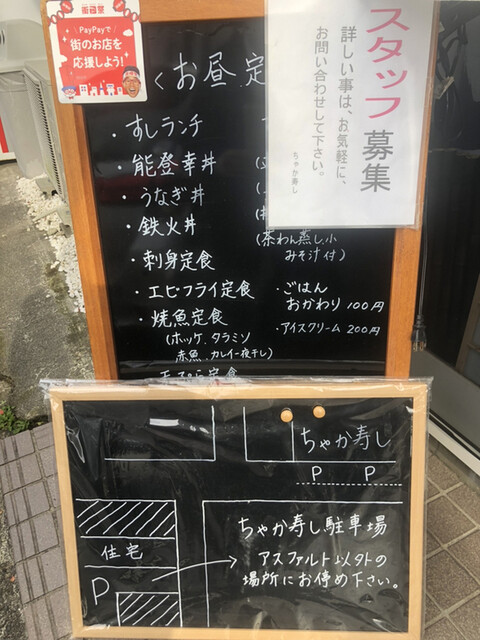 PayPayで
街のお店を
応援しよう!
スタッフ募集
詳しい事は、お気軽に、
お問い合わせして下さい。
ちゃか寿し
〈お昼定
・すしランチ
・能登幸丼
・うなぎ丼
・鉄火丼
・刺身定食
・エビフライ定食
・焼魚定食
(ホッケ、タラミソ
赤魚、カレイ一夜干し)
(茶わん蒸し小
みそ汁付)
・ごはん
おかわり 100円
・アイスクリーム 200円
ちゃか寿し
P P
ちゃか寿し駐車場
アスファルト以外の
場所にお停め下さい。
住宅
P